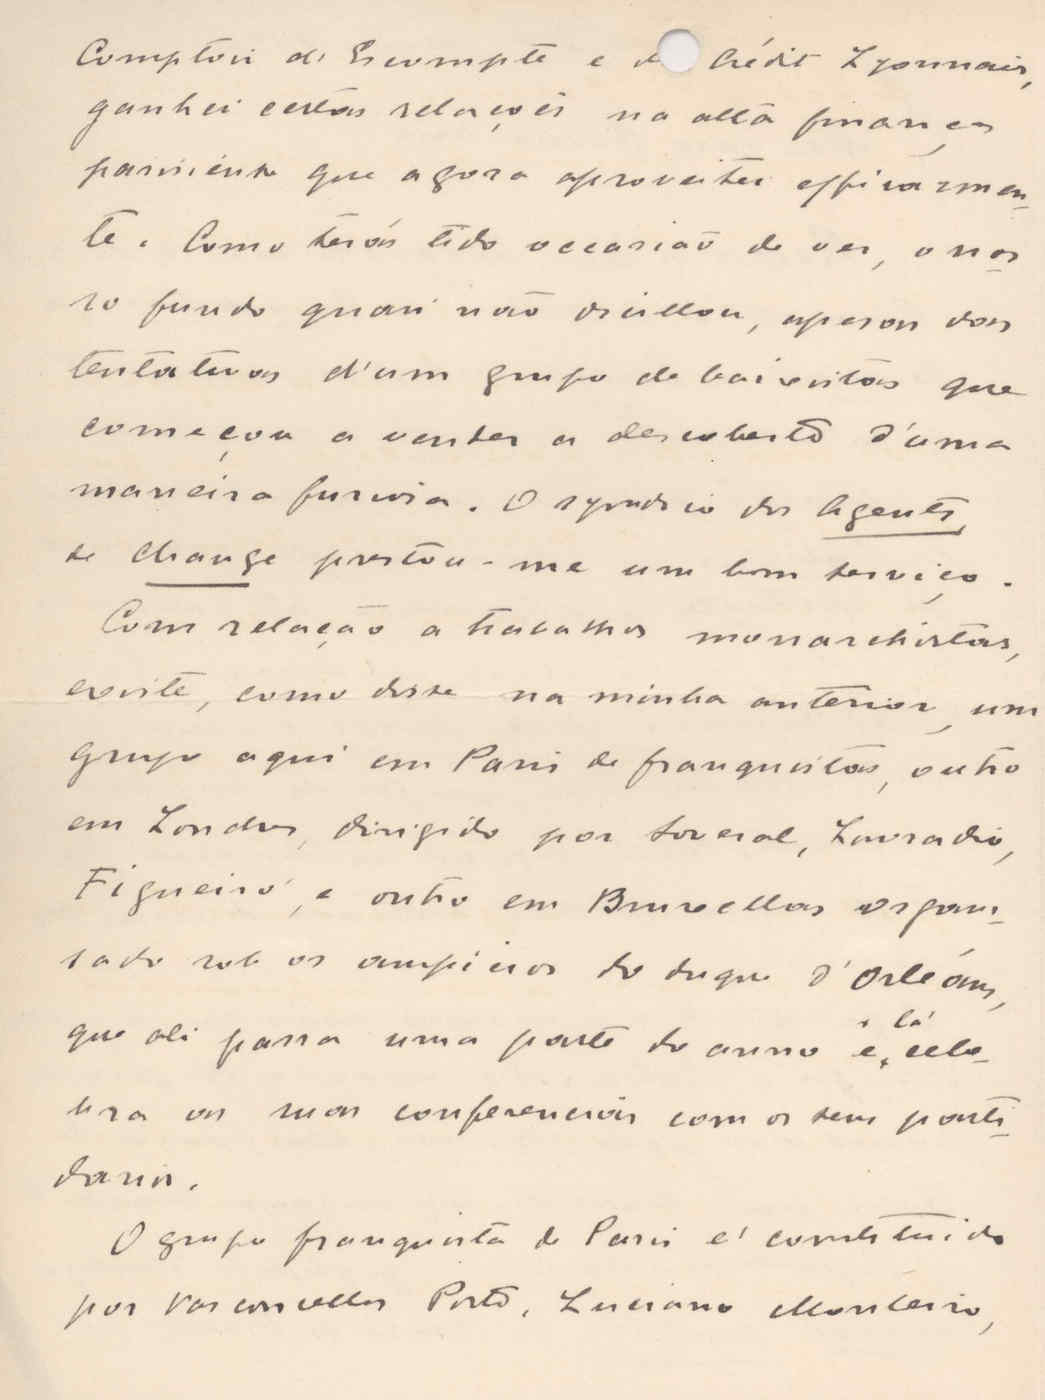 Comptoir d'Escompte e do Crédit Lyonnais,
ganhei certas relações na alta finança
parisiense que agora aproveitei efficazmen-
te. Como terás tido occasião de ver, o nos-
so fundo quasi não oscillou, apesar das
tentativas d'um grupo de baixistas que
começou a vender a descoberto d'uma
maneira furiosa. O syndico dos Agents
de change prestou-me um bom serviço.
Com relação a trabalhos monarchistas,
existe, como disse na minha anterior, um
grupo aqui em Paris de franquistas, outro
em Londres, dirigido por Soveral, Lavradio,
Figueiró, e outro em Bruxellas organi-
sado sob os auspicios do duque d'Orléans,
que ali passa uma parte do anno e lá cele-
bra as suas conferencias com os seus parti-
darios.
O grupo franquista de Paris é constituido
por Vasconcellos Porto, Luciano Monteiro,